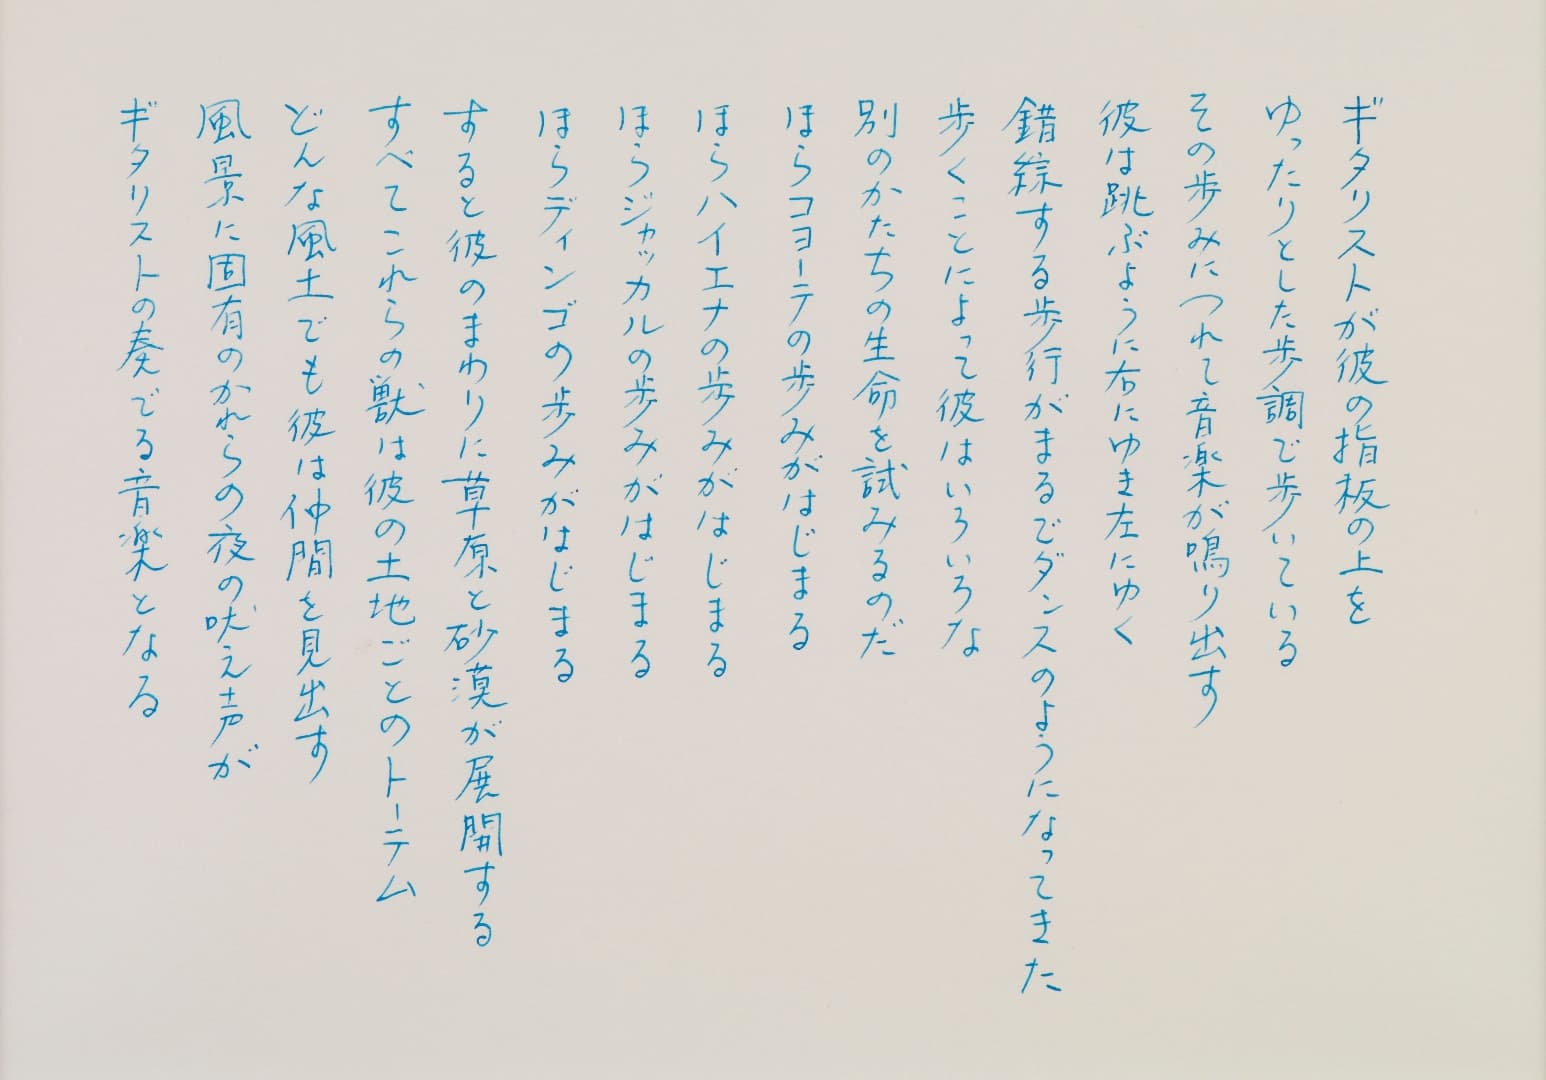 ギタリストが彼の指板の上を
ゆったりとした歩調で歩いている
その歩みにつれて音楽が鳴り出す
彼は跳ぶように右にゆき左にゆく
錯綜する歩行がまるでダンスのようになってきた
歩くことによって彼はいろいろな
別のかたちの生命を試みるのだ
ほらコヨーテの歩みがはじまる
ほらハイエナの歩みがはじまる
ほらジャッカルの歩みがはじまる
ほらディンゴの歩みがはじまる
すると彼のまわりに草原と砂漠が展開する
すべてこれらの獣は彼の土地ごとのトーテム
どんな風土でも彼は仲間を見出す
風景に固有のかれらの夜の吠え声が
ギタリストの奏でる音楽となる